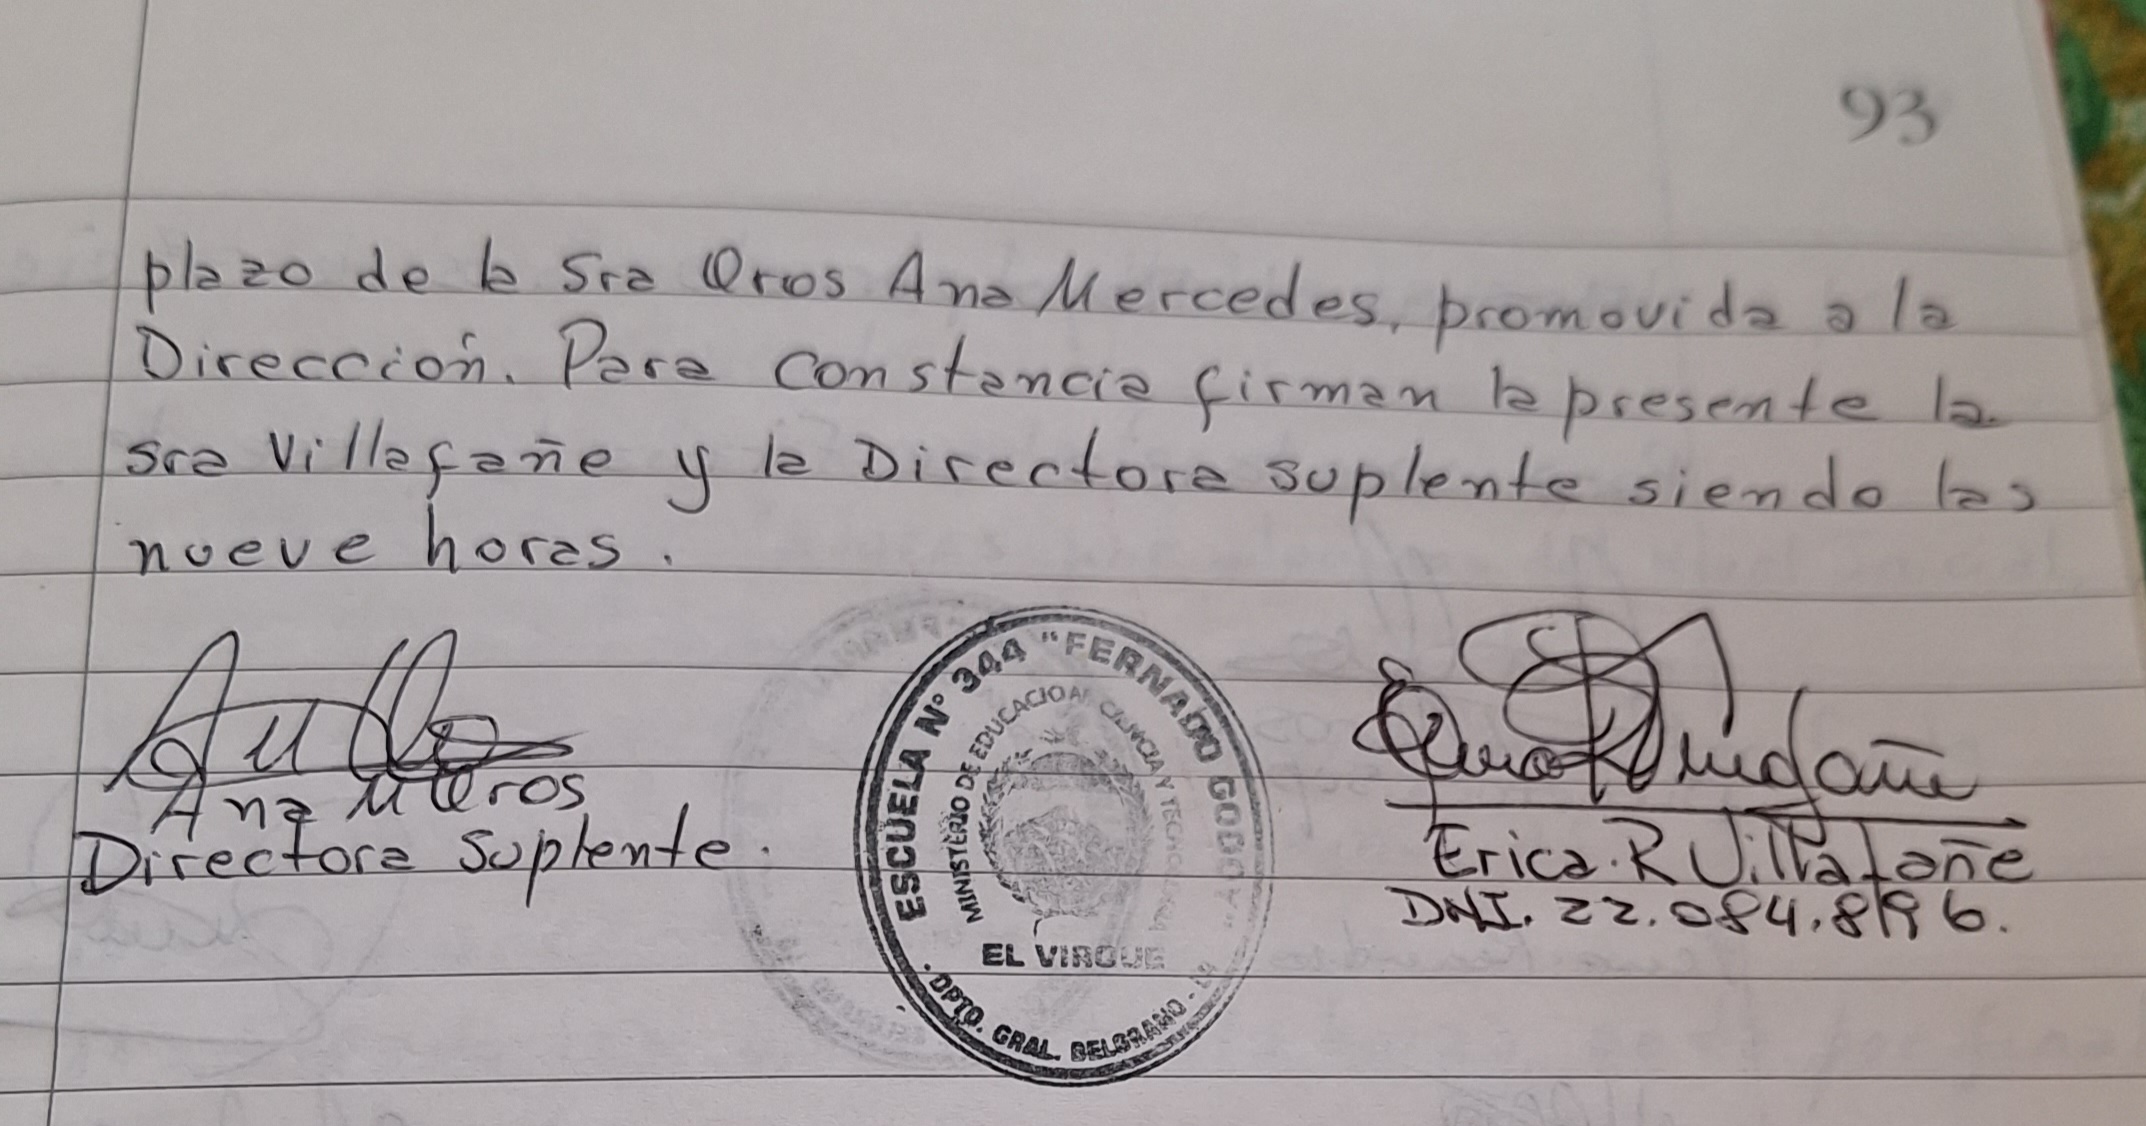 93
plazo de la Sra Oros Ana Mercedes, promovida a la
Dirección. Para constancia firman la presente la
Sra Villafañe y la Directora suplente siendo las
nueve horas.
Ana M Oros
Directora Suplente.
ESCUELA N° 344 "FERNANDO GODOY"
MINISTERIO DE EDUCACION CIENCIA Y TECNOLOGIA
EL VIRQUE
DPTO. GRAL. BELGRANO - LR
Erica R Villafañe
DNI. 22.084.896.